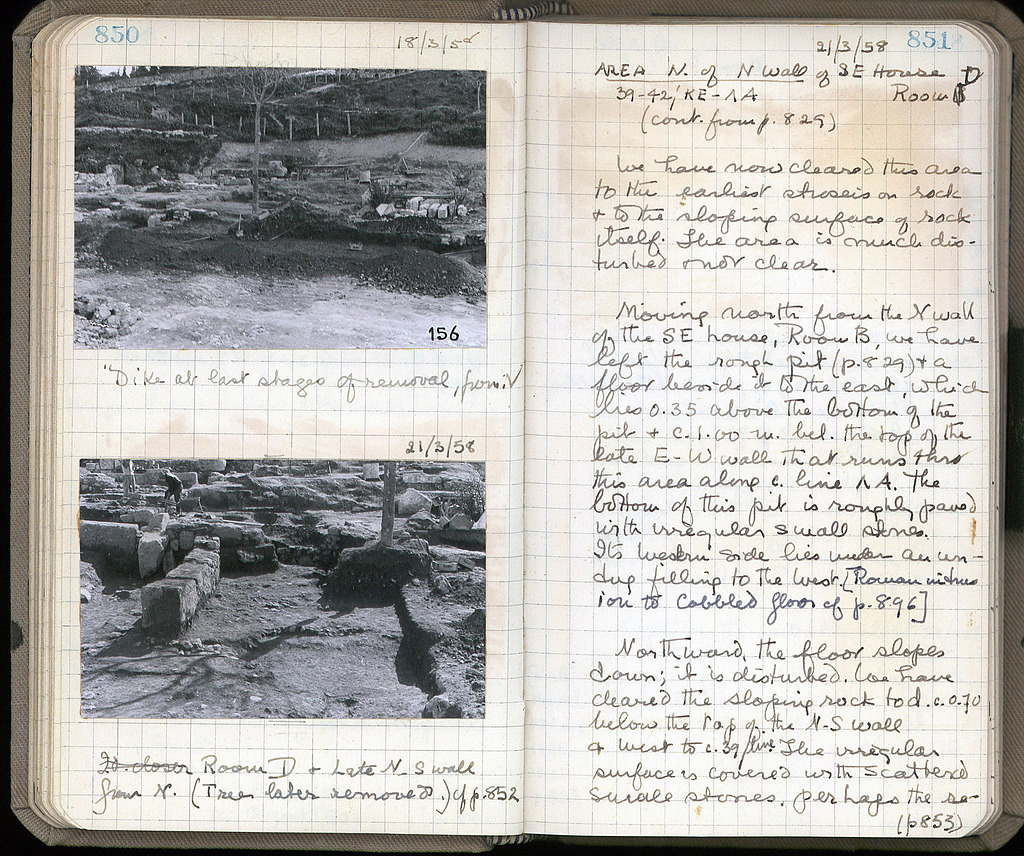 850
18/3/58
156
"Dike at last stages of removal, from N
21/3/58
Id. closer Room D + Late N-S wall
from N. (Tree later removed.) cf p. 852
21/3/58
851
AREA N. of N Wall of SE House D
39-42/KE-ΛA Room B
(cont. from p. 829)
We have now cleared this area
to the earliest strosis on rock
+ to the sloping surface of rock
itself. The area is much dis-
turbed + not clear.
Moving north from the N wall
of the SE house, Room B, we have
left the rough pit (p. 829) + a
floor beside it to the east, which
lies 0.35 above the bottom of the
pit + c. 1.00 m. bel. the top of the
late E-W wall that runs thru
this area along c. line ΛA. The
bottom of this pit is roughly paved
with irregular small stones.
Its western side lies under an un-
dug filling to the west. [Roman intrus
ion to cobbled floor cf p. 896]
Northward, the floor slopes
down; it is disturbed. We have
cleared the sloping rock to d. c. 0.70
below the top of the N-S wall
+ west to c. 39/line. The irregular
surface is covered with scattered
small stones, perhaps the re-
(p 853)